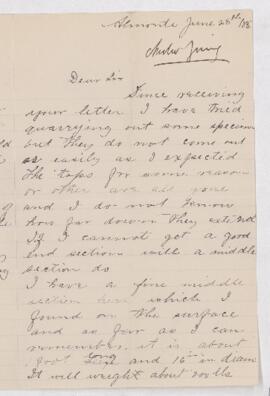 Almonte June 28th /08
Dear Sir
Since receiving
your letter I have tried
quarrying out some specimen
but they do not come out
as easily as I expected
The tops for some reason
or other are all gone
and I do not know
how far down they extend
If I cannot get a good
end sections will a middle
section do
I have a fine middle
section here which I
found on the surface
and as far as I can
remember it is about
1 foot long and 16" in diam
It will weight about 100 lbs